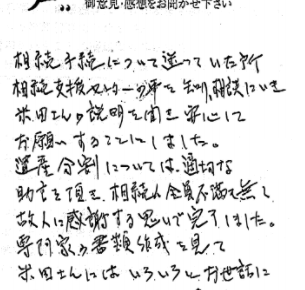 御意見・感想をお聞かせ下さい
相続手続について迷っていた所
相続支援センターの事を知り、相談にいき
米田さんの説明を聞き安心して
お願いすることにしました。
遺産分割については、適切な
助言を頂き、相続人全員不満も無く
故人に感謝する思いで完了しました。
専門家の書類作成を見て
米田さんにはいろいろとお世話に